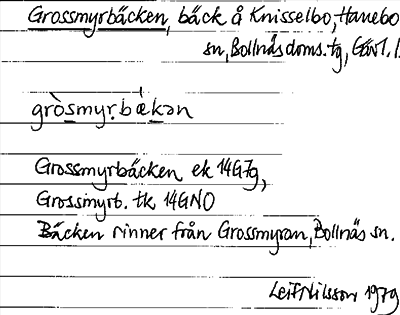 Grossmyrbäcken, bäck å Knisselbo, Hanebo
sn, Bollnäs doms. tg, Gävl. l.
gròsmyr̥bækən
Grossmyrbäcken ek 14G7g,
Grossmyrb. tk 14GNO
Bäcken rinner från Grossmyran, Bollnäs sn.
Leif Nilsson 1979